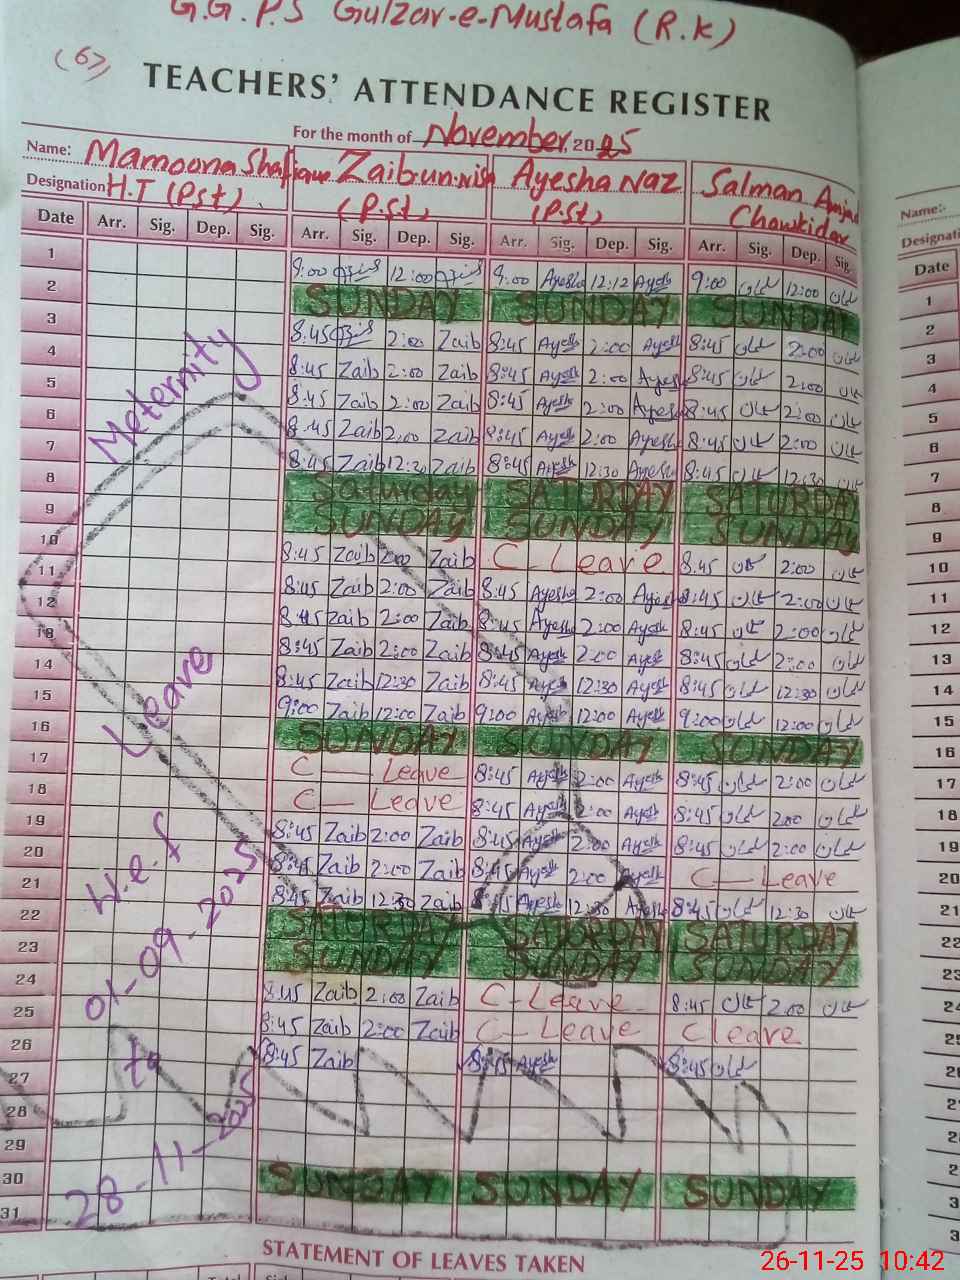 G.G.P.S Gulzar-e-Mustafa (R.K)
(67)
TEACHERS' ATTENDANCE REGISTER
For the month of November 2025
Name: Mamoona Shafique Zaibun-nisa Ayesha Naz Salman Amjad
Designation H.T (Pst) (P.St) (P.St) Chowkidar
Date Arr. Sig. Dep. Sig. Arr. Sig. Dep. Sig. Arr. Sig. Dep. Sig. Arr. Sig. Dep. Sig.
1 9:00 12:00 9:00 Ayesha 12:12 Ayesh 9:00 12:00
2 SUNDAY SUNDAY SUNDAY
3 8:45 2:00 Zaib 8:45 Ayesh 2:00 Ayesh 8:45 2:00
4 8:45 Zaib 2:00 Zaib 8:45 Ayesh 2:00 Ayesh 8:45 2:00
5 8:45 Zaib 2:00 Zaib 8:45 Ayesh 2:00 Ayesh 8:45 2:00
6 8:45 Zaib 2:00 Zaib 8:45 Ayesh 2:00 Ayesh 8:45 2:00
7 8:45 Zaib 12:30 Zaib 8:45 Ayesh 12:30 Ayesha 8:45 12:30
8 Saturday SATURDAY SATURDAY
9 SUNDAY SUNDAY SUNDAY
10 8:45 Zaib 2:00 Zaib C-Leave 8:45 2:00
11 8:45 Zaib 2:00 Zaib 8:45 Ayesha 2:00 Ayesh 8:45 2:00
12 8:45 Zaib 2:00 Zaib 8:45 Ayesh 2:00 Ayesh 8:45 2:00
13 8:45 Zaib 2:00 Zaib 8:45 Ayesh 2:00 Ayesh 8:45 2:00
14 8:45 Zaib 12:30 Zaib 8:45 Ayesh 12:30 Ayesh 8:45 12:30
15 9:00 Zaib 12:00 Zaib 9:00 Ayesh 12:00 Ayesh 9:00 12:00
16 SUNDAY SUNDAY SUNDAY
17 C-Leave 8:45 Ayesh 2:00 Ayesh 8:45 2:00
18 C-Leave 8:45 Ayesh 2:00 Ayesh 8:45 2:00
19 8:45 Zaib 2:00 Zaib 8:45 Ayesh 2:00 Ayesh 8:45 2:00
20 8:45 Zaib 2:00 Zaib 8:45 Ayesh 2:00 Ayesh C-Leave
21 8:45 Zaib 12:30 Zaib 8:45 Ayesh 12:30 Ayesh 8:45 12:30
22 SATURDAY SATURDAY SATURDAY
23 SUNDAY SUNDAY SUNDAY
24 8:45 Zaib 2:00 Zaib C-Leave 8:45 2:00
25 8:45 Zaib 2:00 Zaib C-Leave C Leave
26 8:45 Zaib 8:45 Ayesh 8:45
27
28
29
30 SUNDAY SUNDAY SUNDAY
31
Meternity
Leave
W.e.f
01-09-2025
to
28-11-2025
STATEMENT OF LEAVES TAKEN
Name:-
Date
1
2
3
4
5
6
7
8
9
10
11
12
13
14
15
16
17
18
19
20
21
22
23
26-11-25 10:42